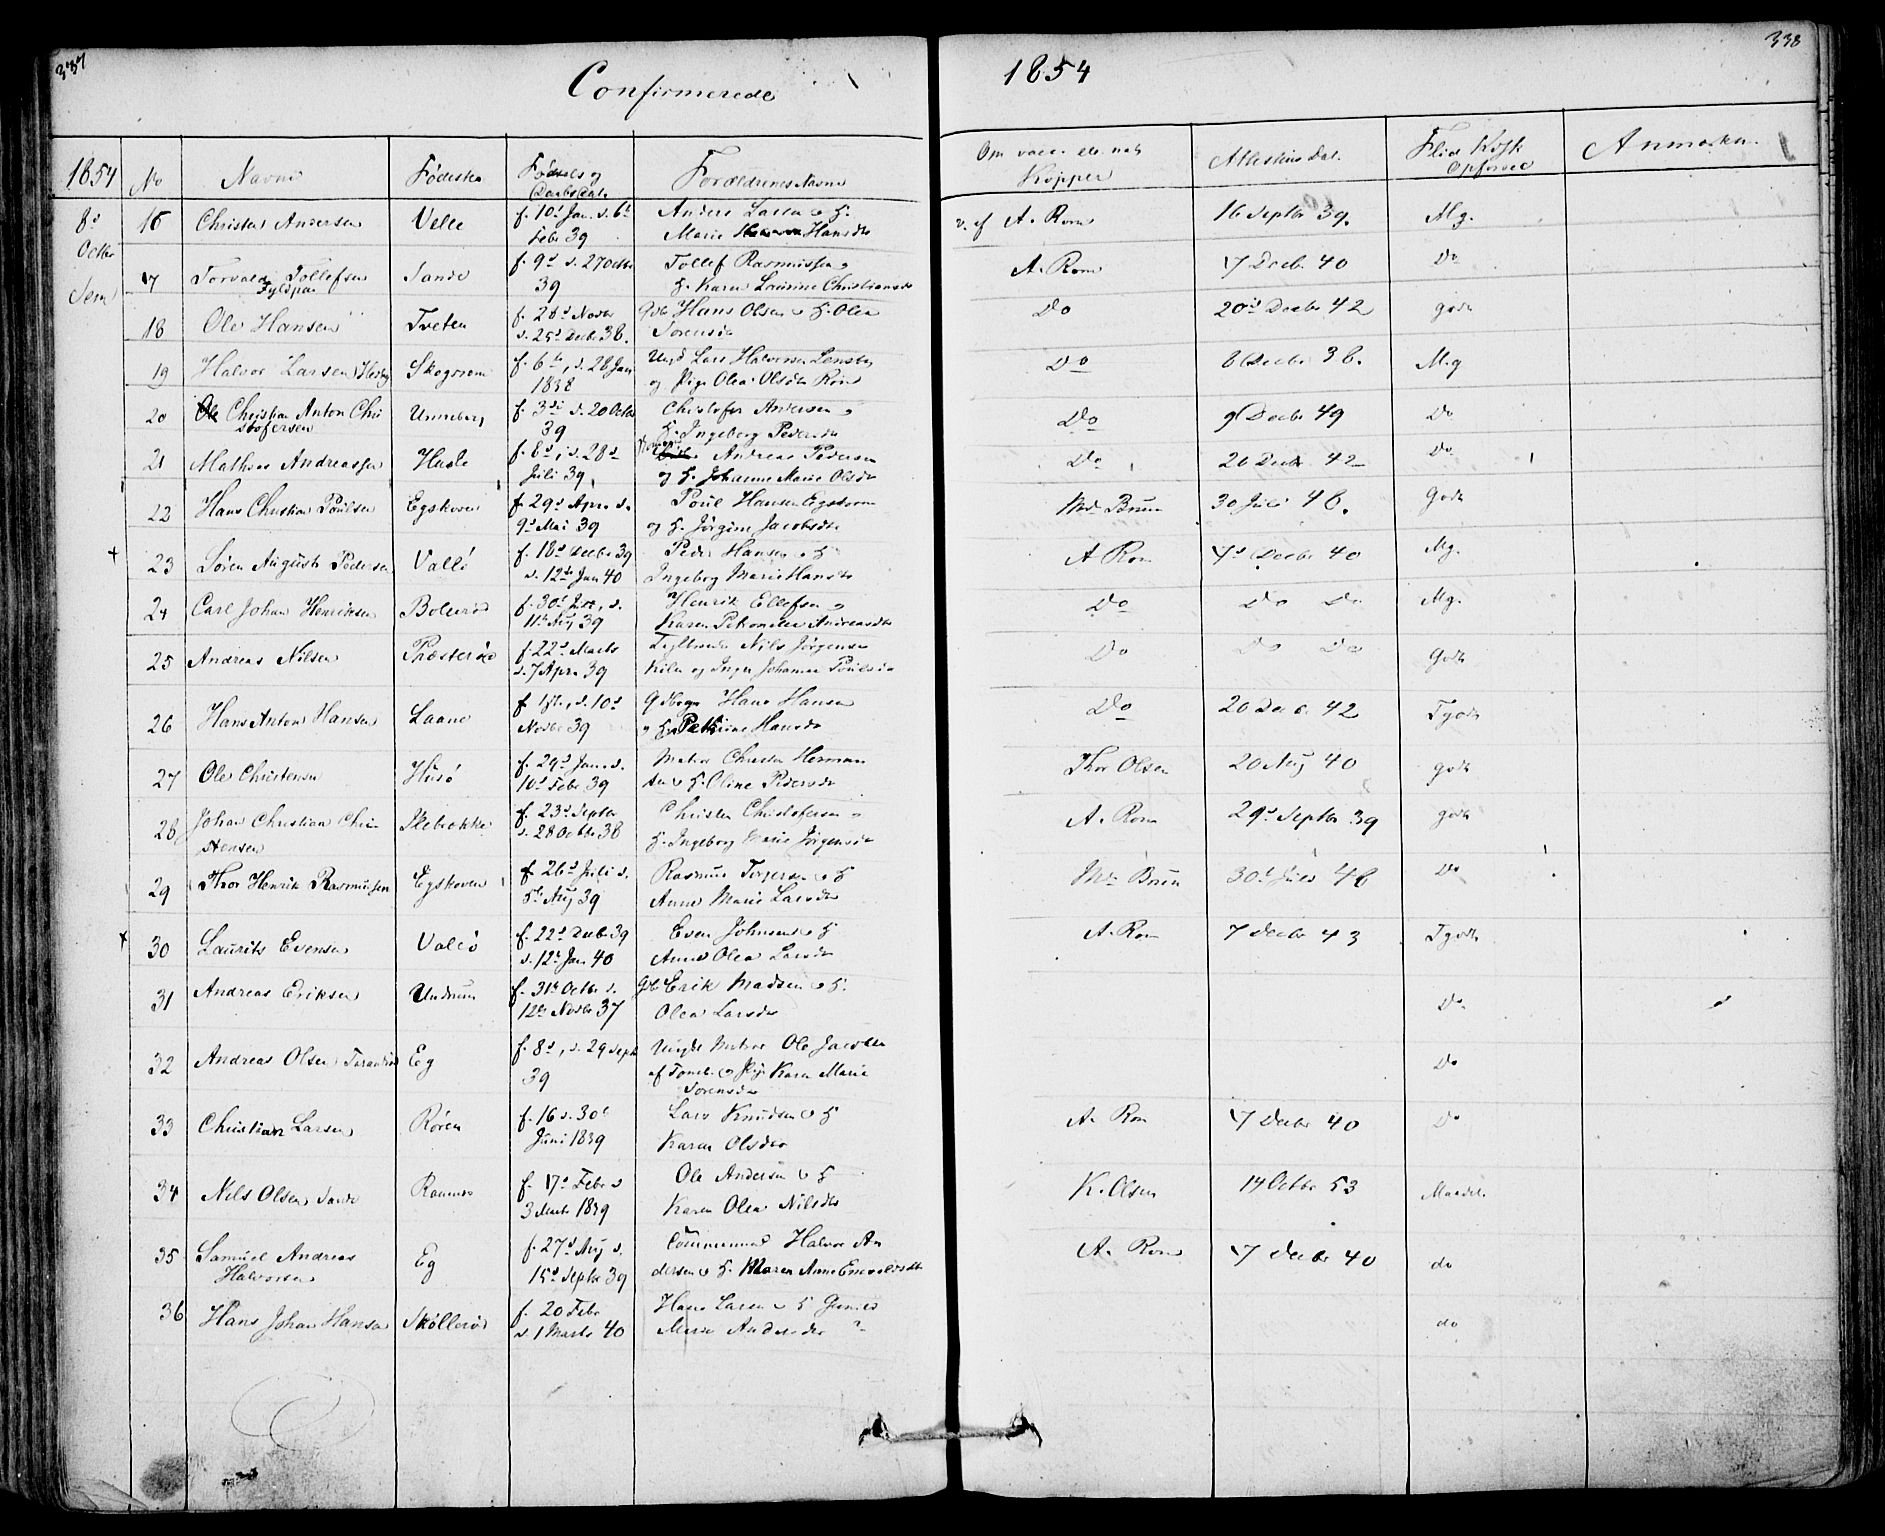 337
Confirmerede
1854
338
1854 No Navne Födested Fødsels og Daabs Dat. Forældrenes Navne Om vacc. ell. nat. Kopper Attestens Dat. Flid Kdsk Opførsel Anmærkn.
8d Octbr Sem
16 Christen Andersen Velle f. 10d Jan. d. 6te Febr 39 Anders Larsen o H. Marie Hansdr v. af A. Rom 16 Septbr 39. Mg.
17 Torvald Tollefsen Fyldpaa Sande f. 9d d. 27 Octbr 39 Tollef Rasmussen o H. Karen Laurine Christiansdr A. Rom 7 Decbr 40 Do
18 Ole Hansen Tveten f. 28d Novbr d. 25d Decbr 38. Gdb Hans Olsen o H. Olea Sørensdr Do 20d Decbr 42 godt
19 Halvor Larsen Skogsrom f. 6te, d. 28 Jan 1838 Ungk Lars Halvorsen og Pige Olea Olsdr Röne Do 8 Decbr 38. Mg
20 Christian Anton Christofersen Unneberg f. 3die d. 20 Octbr 39 Christofer Andersen o H. Ingeborg Pedersdr Do 9 Decbr 49 Do
21 Mathias Andreassen Hasle f. 8d, d. 28d Juli 39 Andreas Pedersen og H. Johanne Marie Olsdr Do 20 Decbr 42 Do
22 Hans Christian Poulsen Egskoven f. 29d Apr. d. 9d Mai 39 Poul Hansen Egskoven og H. Jörgine Jacobsdr Md Bruun 30 Juli 48. Godt
23 Sören August Pedersen Vallö f. 18d Decbr 39 d. 12te Jan 40 Peder Hansen o H Ingeborg Marie Hansdr A Rom 7d Decbr 40 Mg.
24 Carl Johan Henriksen Bolleröd f. 30d Juli, d. 11te Aug 39 Henrik Ellefsen o Karen Petronelle Andreasdr Do Do Do Mg.
25 Andreas Nilsen Præsteröd f. 22d Marts d. 7 Apr. 39 Nils Jörgensen Kilen og Inger Johanne Poulsdr Do Do Do Godt
26 Hans Anton Hansen Laane f. d. 10d Novbr 39 Hans Hansen o H. Petrine Hansdr Do 20 Decbr 42 Tgodt
27 Ole Christensen Husö f. 29d Jan. d. 10d Febr 39 Matros Christen Hermansen o H. Oline Pedersdr Thor Olsen 20 Aug 40 godt
28 Johan Christian Christensen Plebakke f. 23d Septbr d. 28 Octbr 38 Christen Christofersen o H. Ingeborg Marie Jörgensdr A. Rom 29d Septbr 39 godt
29 Thor Henrik Rasmussen Egskoven f. 26d Juli d. 5te Aug 39 Rasmus Torgersen o H Anne Marie Larsdr Md Bruun 30d Juli 48 Do
30 Laurits Evensen Vallö f. 22d Decbr 39 d. 12t Jan 40 Even Johnsen o H Anne Olea Larsdr A. Rom 7 Decbr 43 Tgodt
31 Andreas Eriksen Undrum f. 31te Octbr d. 12te Novbr 37 Gdb Erik Madsen o H. Olea Larsdr Do
32 Andreas Olsen Eg f. 8d, d. 29 Septr 39 Ungk Matros Ole Jacobsen af Tønsb. o Pige Karen Marie Sørensdr Do
33 Christian Larsen Rören f. 16 d. 30t Juni 1839 Lars Knudsen o H Karen Olsdr A. Rom 7 Decbr 40 Do
34 Nils Olsen Sande Ramnes f. 17d Febr d 3 Marts 1839 Ole Andersen o H Karen Olea Nilsdr K. Olsen 14 Octbr 53 Maadel.
35 Samuel Andreas Halvorsen Eg f. 27d Aug d. 15d Septbr 39 Halvor Andersen o H. Maren Anne Enevoldsdr A. Rom 7 Decbr 40 do
36 Hans Johan Hansen Skölleröd f. 20 Febr d. 1 Marts 40 Hans Larsen o H Gunild Marie Andersdr ? do